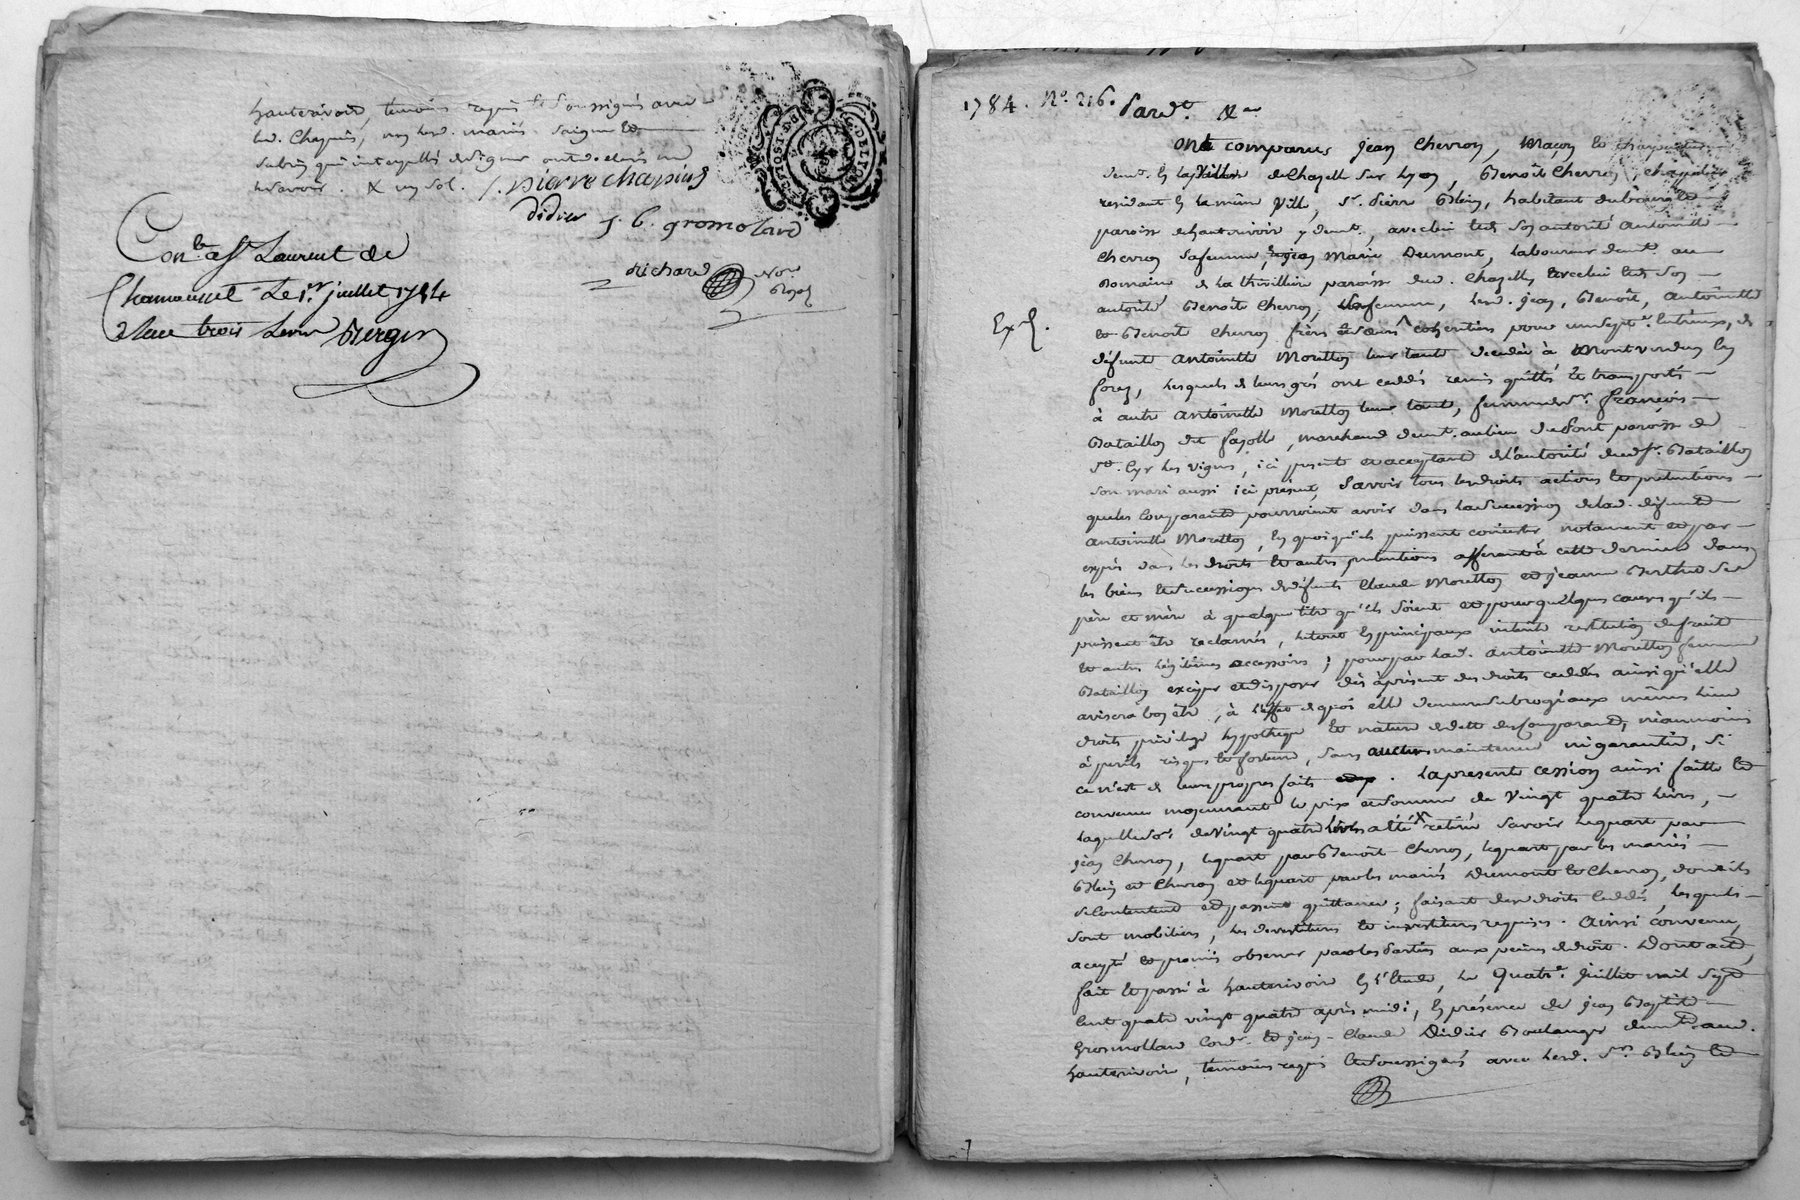 hauterivoir, temoins requis et soussignés avec
led. Chapuis, non lesd. mariés
qui interpellés de signer ont declaré ne
le savoir. & un sol. pierre chapuis
didier j. b. gromolard
richard No.re
Royal
Con.lé a St Laurent de
Chamousset Le 1.er juillet 1784
Reçu trois Livres Bergier
G. DE LYON
1784. N.o 216. Pard.t &a
Ont comparus jean Chevron, Maçon et
demt. en la Ville de Chazelle sur Lyon, Benoît Chevron,
residant en la même Ville, Sr. Pierre Blein, habitant du bourg et
paroisse de hauterivoir y demt., avec lui et de Son autorité Antoinette
Chevron Sa femme, et jean Marie Dumont, Laboureur demt. au
Domaine de la Thivilliere paroisse dud. Chazelle et avec lui et de Son
autorité Benoîte Chevron, Sa femme, lesd. jean, Benoît, Antoinette
Ex.é.
et Benoîte Chevron freres et soeurs cohéritiers pour un sept.e entr'eux, de
défunte Antoinette Moretton leur tante decedée à Montverdun en
forez, Lesquels de leurs grés ont ceddés remis quittés et transportés
à autre Antoinette Moretton leur tante, femme de Sr. françois
Bataillon dit fayolle, marchand demt. au lieu de Pont paroisse de
St. Cyr les vignes, ici presente et acceptante de l'autorité dud. Sr. Bataillon
Son mari aussi ici présent, Savoir tous les droits actions et prétentions
que les Comparants pourroient avoir dans la Succession de lad. défunte
Antoinette Moretton, en quoi qu'ils puissent consister notament et par
exprès dans les droits et autres prétentions afferants à cette derniere dans
les biens et Successions de défunts Claude Moretton et jeanne Berthet Ses
père et mère à quelque titre qu'ils Soient et pour quelques causes qu'ils
puissent être reclamés, le tout en principaux intérêts restitution de fruits
et autres légitimes accessoires; pour par lad. Antoinette Moretton femme
Bataillon exciper et disposer dès àprésent des droits ceddés ainsi qu'elle
avisera bon être, à l'effet de quoi elle demeure subrogée aux mêmes Lieu
droits privilege hypotheque et nature de dette des Comparants, néanmoins
à perils risques et fortune, Sans aucune maintenue ni garantie, Si
ce n'est de leurs propres faits. La presente cession ainsi faitte et
convenue moyennant le prix et Somme de Vingt quatre Livres,
Laquelle So.e de Vingt quatre Livres a été retirée Savoir le quart par
jean Chevron, le quart par Benoît Chevron, le quart par les mariés
Blein et Chevron et le quart par les mariés Dumont et Chevron, dont ils
se Contentent et passent quittance; faisant des droits Ceddés, Lesquels
Sont mobiliers, les devestitures et investitures requises. Ainsi convenu,
accepté et promis observer par les Parties aux peines de droit. Dont acte,
fait et passé à hauterivoir en l'Etude, le quatre juillet mil Sept
Cent quatre vingt quatre après midi, en présence de jean Baptiste
Gromollard Cord.r et jean-Claude Didier Boulanger demt. aud.
hauterivoir, temoins requis et Soussignés avec lesd. Srs. Blein et